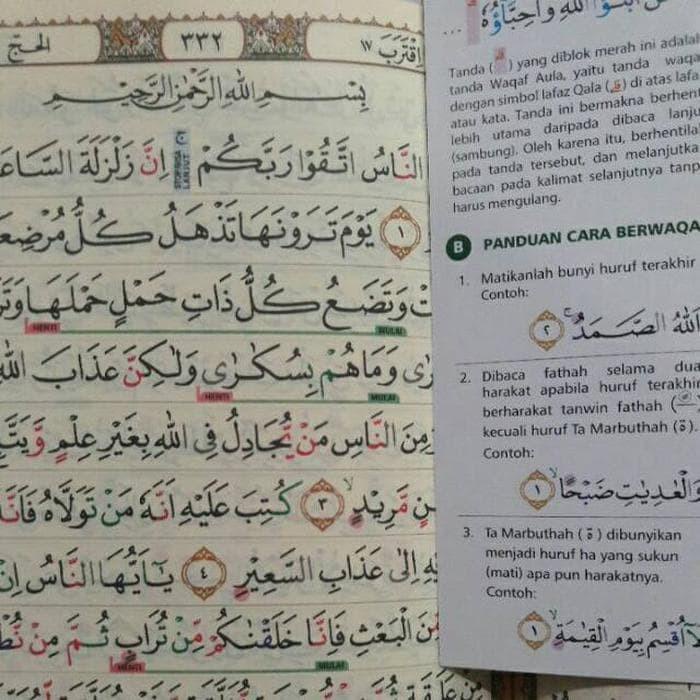 الحجّ
٣٣٢
اِقْتَرَبَ ١٧
بِسْمِ اللهِ الرَّحْمٰنِ الرَّحِيْمِ
النَّاسُ اتَّقُوْا رَبَّكُمْ ۚ اِنَّ زَلْزَلَةَ السَّاعَ
STOP/BISA LANJUT
١ يَوْمَ تَرَوْنَهَا تَذْهَلُ كُلُّ مُرْضِعَ
وَتَضَعُ كُلُّ ذَاتِ حَمْلٍ حَمْلَهَا وَتَرَ
HENTI MULAI
وَمَا هُمْ بِسُكَارٰى وَلٰكِنَّ عَذَابَ اللهِ
HENTI MULAI
مِنَ النَّاسِ مَنْ يُّجَادِلُ فِى اللهِ بِغَيْرِ عِلْمٍ وَّيَتَّ
مَّرِيْدٍ ٣ كُتِبَ عَلَيْهِ اَنَّهٗ مَنْ تَوَلَّاهُ فَاَنَّ
اِلٰى عَذَابِ السَّعِيْرِ ٤ يٰٓاَيُّهَا النَّاسُ اِنْ
مِّنَ الْبَعْثِ فَاِنَّا خَلَقْنٰكُمْ مِّنْ تُرَابٍ ثُمَّ مِنْ نُّطْ
HENTI MULAI
اللهِ وَاَحِبَّاۤؤُهٗ ...
Tanda ( ) yang diblok merah ini adalah
tanda Waqaf Aula, yaitu tanda waqa
dengan simbol lafaz Qala ( ) di atas lafa
atau kata. Tanda ini bermakna berhent
lebih utama daripada dibaca lanju
(sambung). Oleh karena itu, berhentila
pada tanda tersebut, dan melanjutka
bacaan pada kalimat selanjutnya tanp
harus mengulang.
B PANDUAN CARA BERWAQA
1. Matikanlah bunyi huruf terakhir
Contoh:
اَللهُ الصَّمَدُ ٢
2. Dibaca fathah selama dua
harakat apabila huruf terakhir
berharakat tanwin fathah ( ً )
kecuali huruf Ta Marbuthah (ة).
Contoh:
وَالْعٰدِيٰتِ ضَبْحًا ١
3. Ta Marbuthah (ة) dibunyikan
menjadi huruf ha yang sukun
(mati) apa pun harakatnya.
Contoh:
لَآ اُقْسِمُ بِيَوْمِ الْقِيٰمَةِ ١